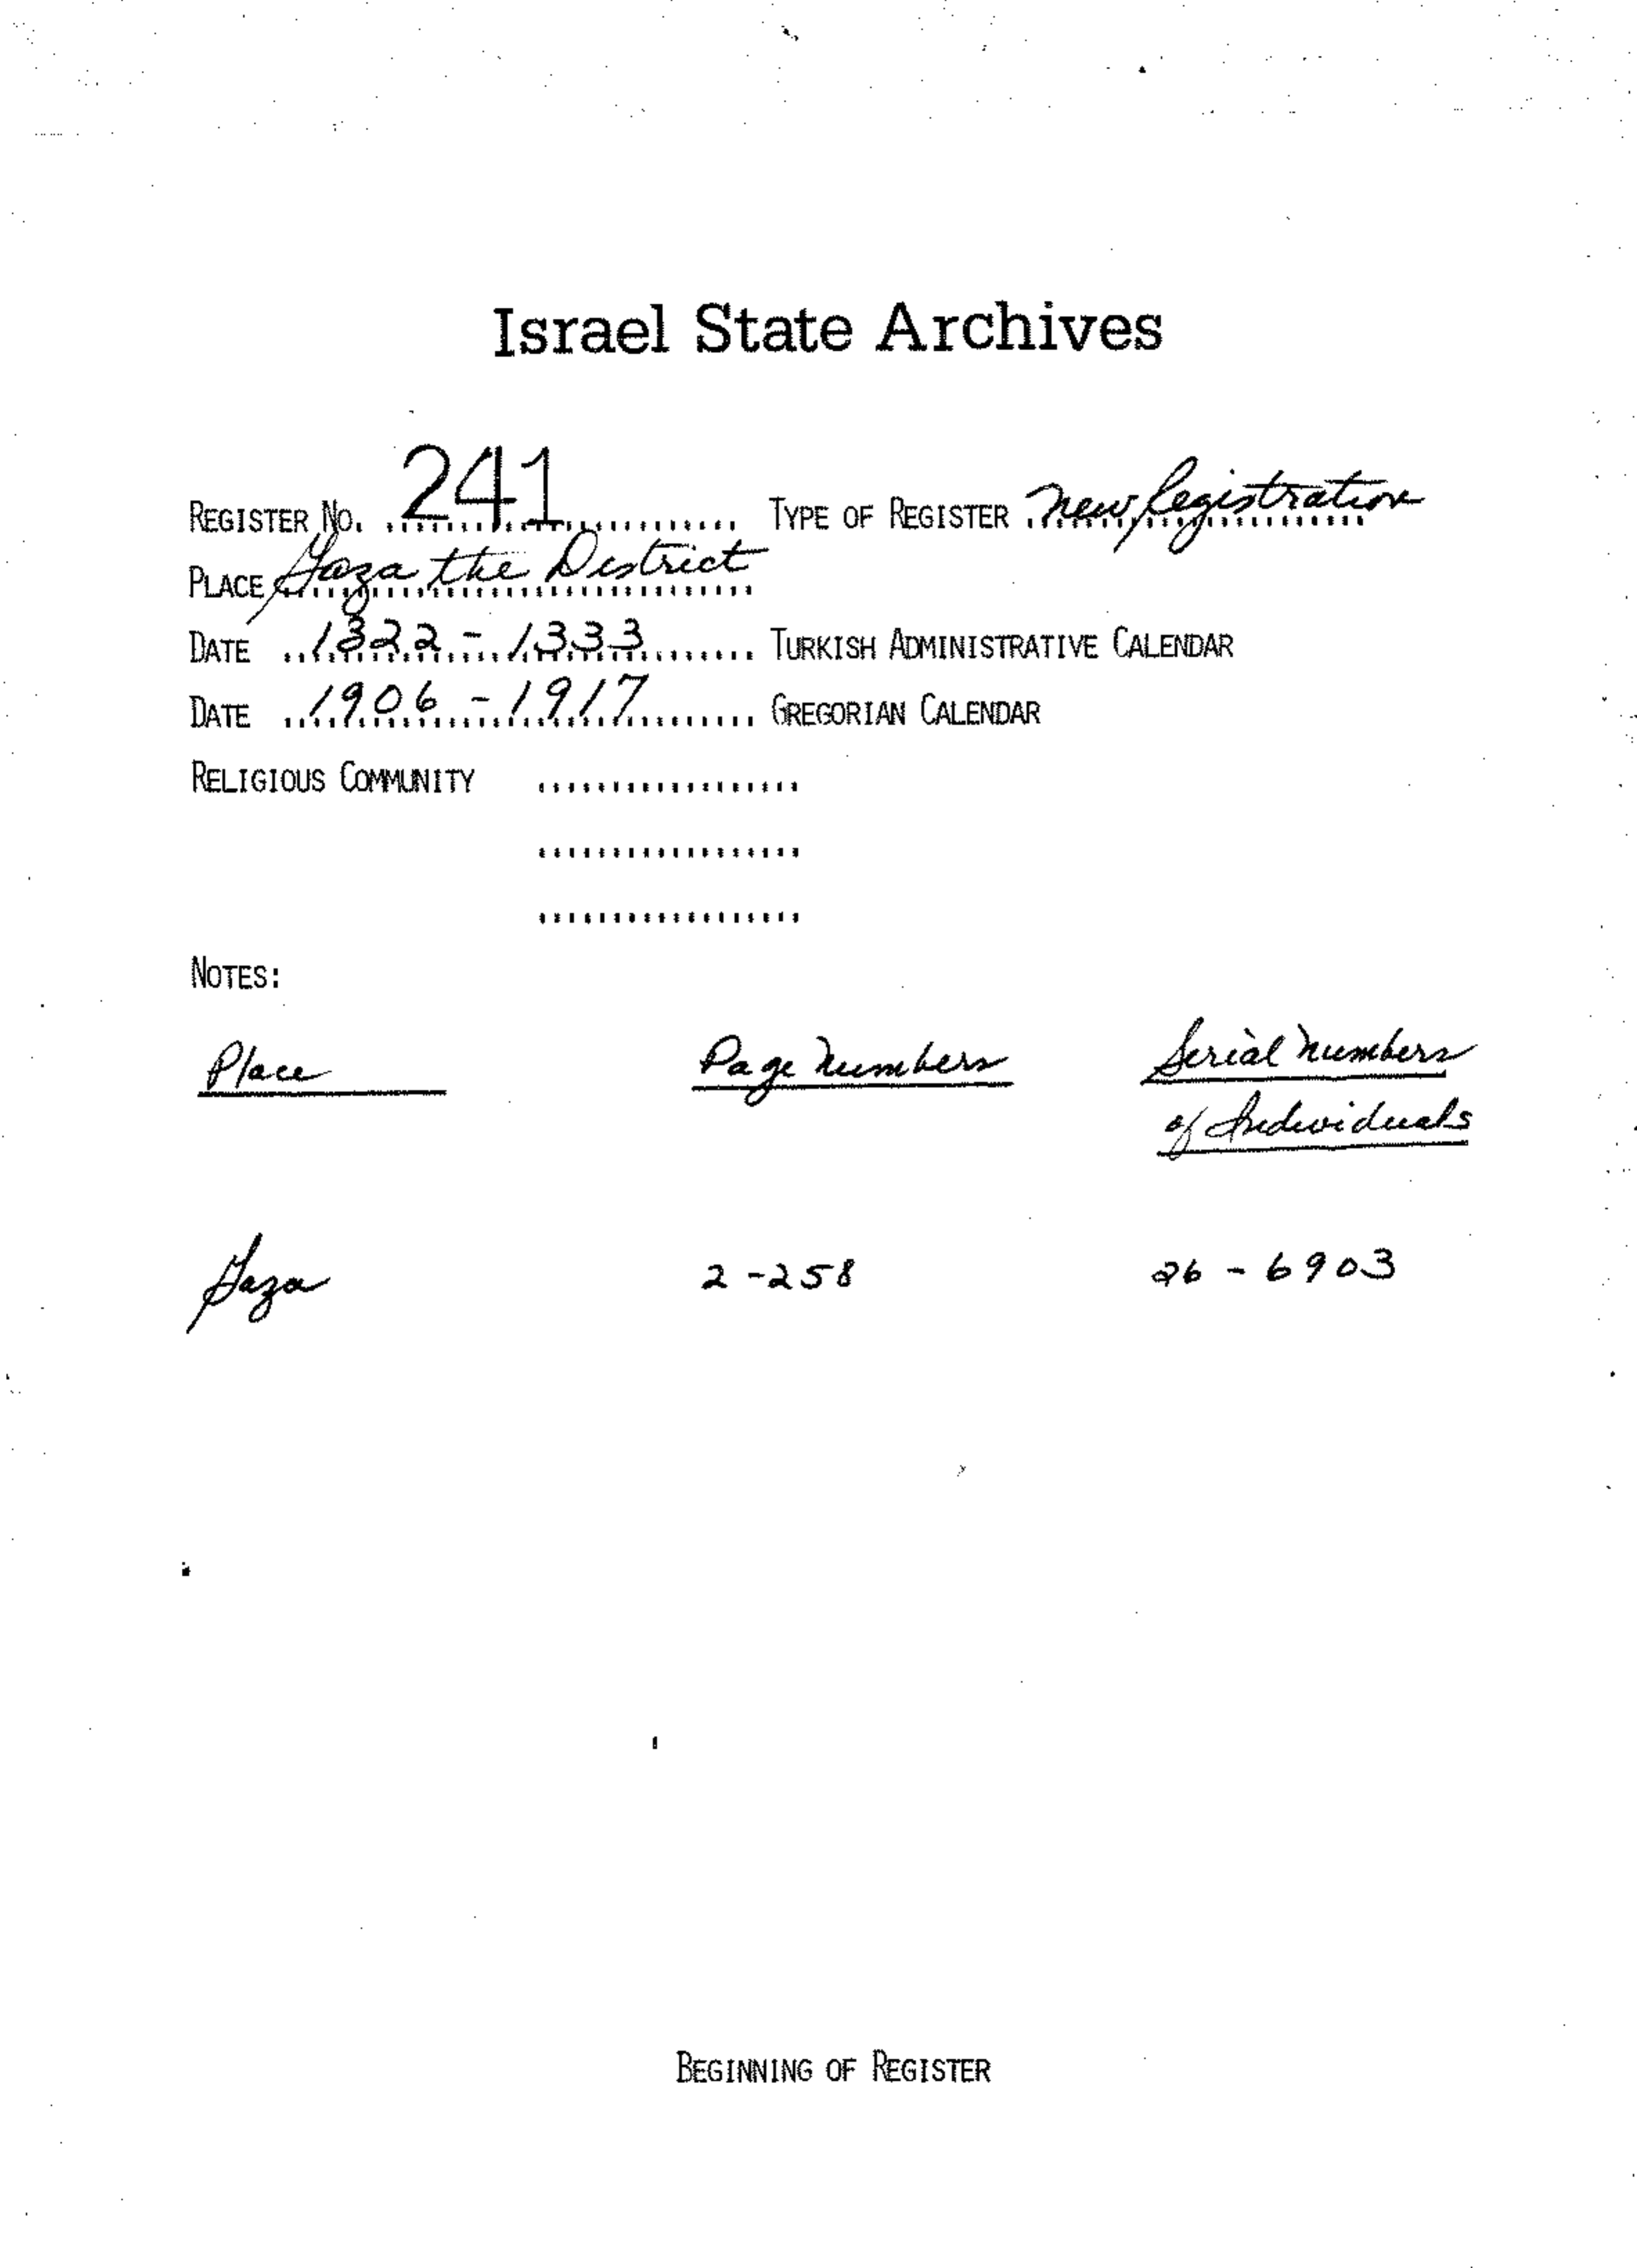 Israel State Archives
REGISTER NO. 241 TYPE OF REGISTER New Registration
PLACE Gaza the District
DATE 1322 - 1333 TURKISH ADMINISTRATIVE CALENDAR
DATE 1906 - 1917 GREGORIAN CALENDAR
RELIGIOUS COMMUNITY
NOTES:
Place Page Numbers Serial Numbers
of Individuals
Gaza 2 - 258 26 - 6903
BEGINNING OF REGISTER